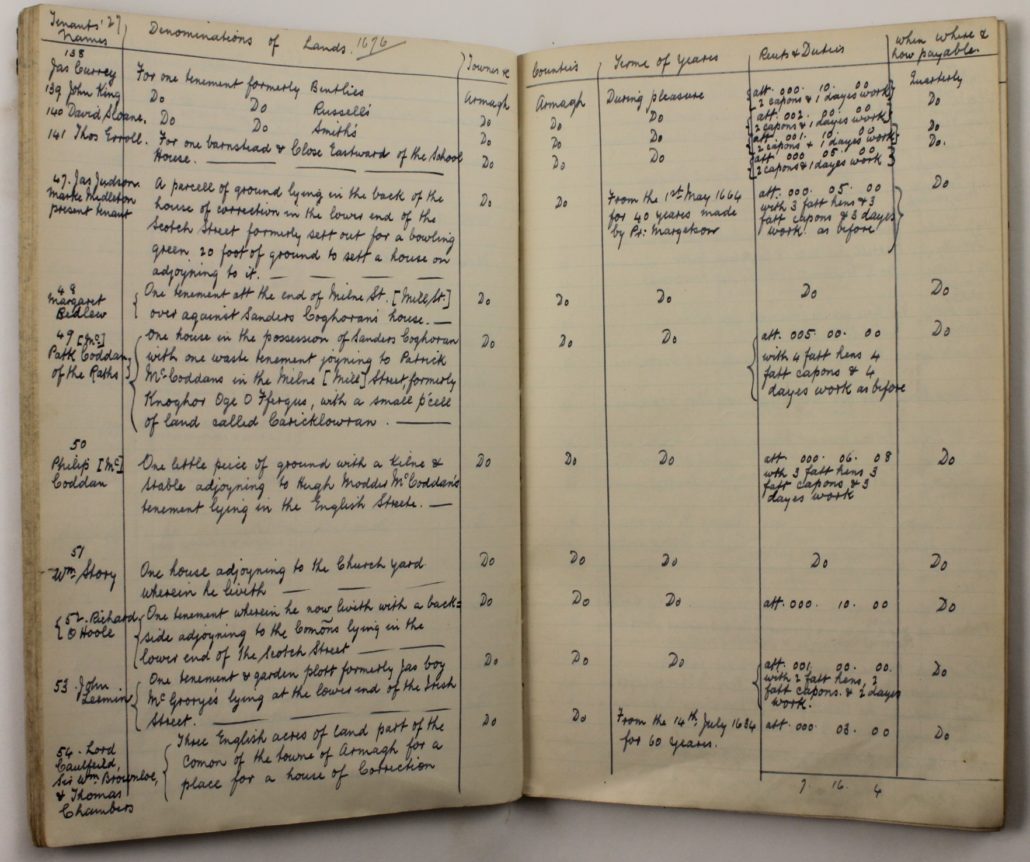 Tenants' 27 Names
Denominations of Lands. 1676
Townes &
138
Jas Currey
For one tenement formerly Bentlies
Armagh
139 John King
Do Do Russell's
Do
140 David Sloane.
Do Do Smith's
Do
141 Thos Erroll.
For one barnstead & Close Eastward of the School
House.
Do
47. Jas Judson
Marke Middleton
present tenant
A parcell of ground lying in the back of the
house of correction in the lower end of the
Scotch Street formerly sett out for a bowling
green, 20 foot of ground to sett a house on
adjoyning to it.
Do
48
Margaret
Bedlew
One tenement att the end of Milne St. [Mill St.]
over against Sanders Coghoran's house.
Do
49 [Mc]
Patk Coddan
of the Raths
One house in the possession of Sanders Coghoran
with one waste tenement joyning to Patrick
McCoddans in the Milne [Mill] Street, formerly
Knoghor Oge O Ffergus, with a small p'cell
of land called Caricklowran.
Do
50
Philip [Mc]
Coddan
One little peice of ground with a Kilne &
stable adjoyning to Hugh Modder McCoddan's
tenement lying in the English Streete.
Do
51
Wm Story
One house adjoyning to the Church yard
wherein he liveth
Do
52. Richard
O Hoole
One tenement wherein he now liveth with a back=
side adjoyning to the Comōns lying in the
lower end of the Scotch Street
Do
53. John
Leemin
One tenement & garden plott formerly Jas boy
McGrorye's lying at the lower end of the Irish
Street.
Do
54. Lord
Caulfeild,
Sir Wm Brownloe,
& Thomas
Chambers
Three English acres of land part of the
comon of the towne of Armagh for a
place for a house of Correction
Do
Counties
Terme of Yeares
Rents & Duties
When where &
how payable.
Armagh
During pleasure
att. 000. 10. 00
2 capons & 1 dayes work
Quarterly
Do
Do
att. 002. 00. 00
2 capons & 1 dayes work
Do
Do
Do
att. 001. 10. 00
2 capons & 1 dayes work
Do
Do
Do
att 000 05. 00
2 capons & 1 dayes work
Do.
Do
From the 1st May 1664
for 40 yeares made
by Pr: Margetson
att. 000. 05. 00
with 3 fatt hens & 3
fatt capons & 3 dayes
work. as before
Do
Do
Do
Do
Do
Do
Do
att. 005. 00. 00
with 4 fatt hens 4
fatt capons & 4
dayes work as before
Do
Do
Do
att. 000. 06. 08
wth 3 fatt hens 3
fatt capons & 3
dayes work
Do
Do
Do
Do
Do
Do
Do
att. 000. 10. 00
Do
Do
Do
att. 001. 00. 00.
with 2 fatt hens, 2
fatt capons. & 2 dayes
work.
Do
Do
From the 14th July 1634
for 60 Yeares.
att. 000. 03. 00
Do
7. 16. 4